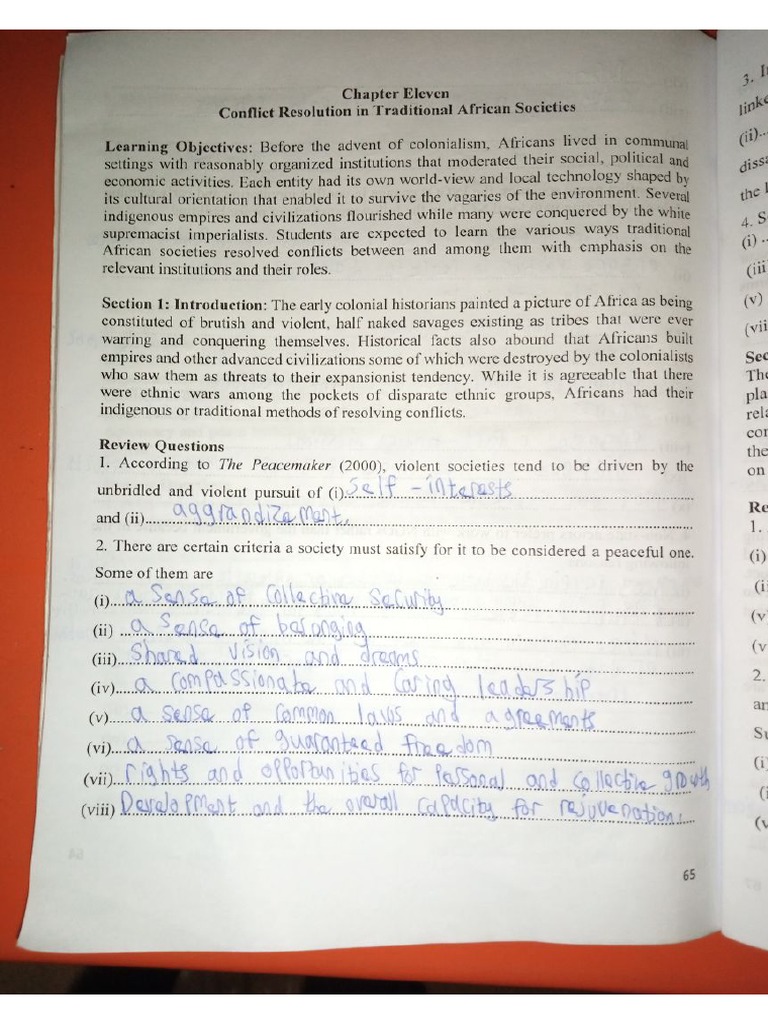 Chapter Eleven
Conflict Resolution in Traditional African Societies
Learning Objectives: Before the advent of colonialism, Africans lived in communal
settings with reasonably organized institutions that moderated their social, political and
economic activities. Each entity had its own world-view and local technology shaped by
its cultural orientation that enabled it to survive the vagaries of the environment. Several
indigenous empires and civilizations flourished while many were conquered by the white
supremacist imperialists. Students are expected to learn the various ways traditional
African societies resolved conflicts between and among them with emphasis on the
relevant institutions and their roles.
Section 1: Introduction: The early colonial historians painted a picture of Africa as being
constituted of brutish and violent, half naked savages existing as tribes that were ever
warring and conquering themselves. Historical facts also abound that Africans built
empires and other advanced civilizations some of which were destroyed by the colonialists
who saw them as threats to their expansionist tendency. While it is agreeable that there
were ethnic wars among the pockets of disparate ethnic groups, Africans had their
indigenous or traditional methods of resolving conflicts.
Review Questions
1. According to The Peacemaker (2000), violent societies tend to be driven by the
unbridled and violent pursuit of (i) Self - interests
and (ii) aggrandizement.
2. There are certain criteria a society must satisfy for it to be considered a peaceful one.
Some of them are
(i) a Sense of Collective Security
(ii) a Sense of belonging
(iii) Shared vision and dreams
(iv) a compassionate and Caring leadership
(v) a sense of common laws and agreements
(vi) a sense of guaranteed freedom
(vii) rights and opportunities for Personal and collective growth
(viii) Development and the overall capacity for rejuvenation.
65
3. I
link
(ii)
diss
the
4. S
(i)
(iii
(v)
(vii
Sec
The
pla
rela
con
the
on
Re
1.
(i)
(i
(v
(v
2.
an
Su
(i
(
(v